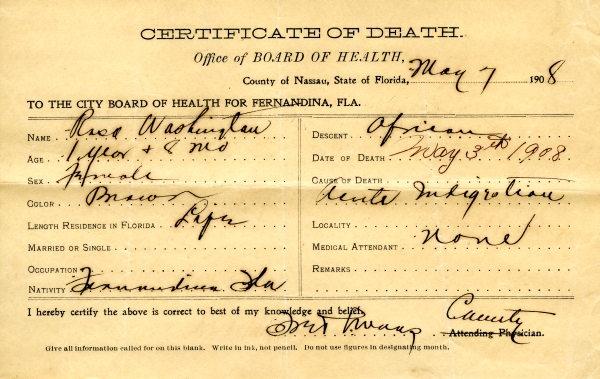 CERTIFICATE OF DEATH.
Office of BOARD OF HEALTH,
County of Nassau, State of Florida, May 7 1908
TO THE CITY BOARD OF HEALTH FOR FERNANDINA, FLA.
NAME Rosa Washington
AGE 1 Year & 8 Mo
SEX Female
COLOR Brown
LENGTH RESIDENCE IN FLORIDA Life
MARRIED OR SINGLE
OCCUPATION
NATIVITY Fernandina Fla
DESCENT African
DATE OF DEATH May 3th 1908
CAUSE OF DEATH
Acute Indigestion
LOCALITY
MEDICAL ATTENDANT None
REMARKS
I hereby certify the above is correct to best of my knowledge and belief.
County
Attending Physician.
Give all information called for on this blank. Write in ink, not pencil. Do not use figures in designating month.